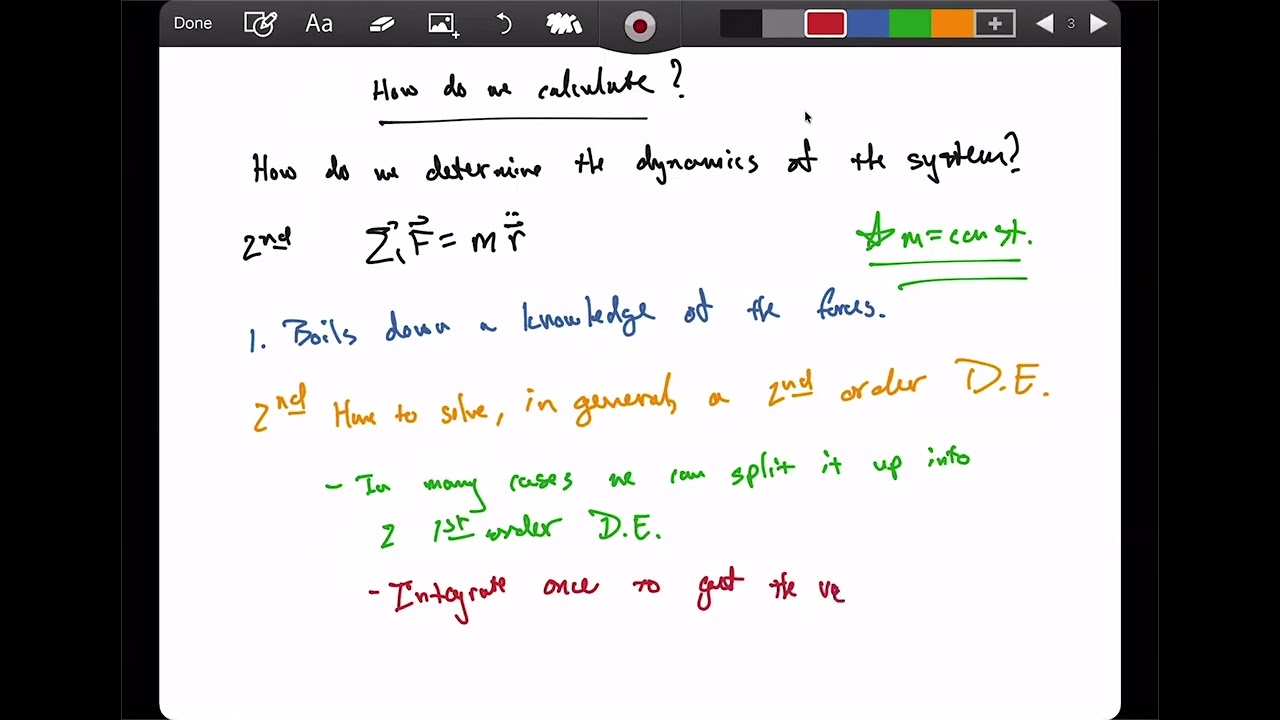 Done Aa 3
How do we calculate?
How do we determine the dynamics of the system?
2nd ∑F⃗ = m r̈ ☆ m = const.
1. Boils down a knowledge of the forces.
2nd Have to solve, in general, a 2nd order D.E.
- In many cases we can split it up into
2 1st order D.E.
- Integrate once to get the ve